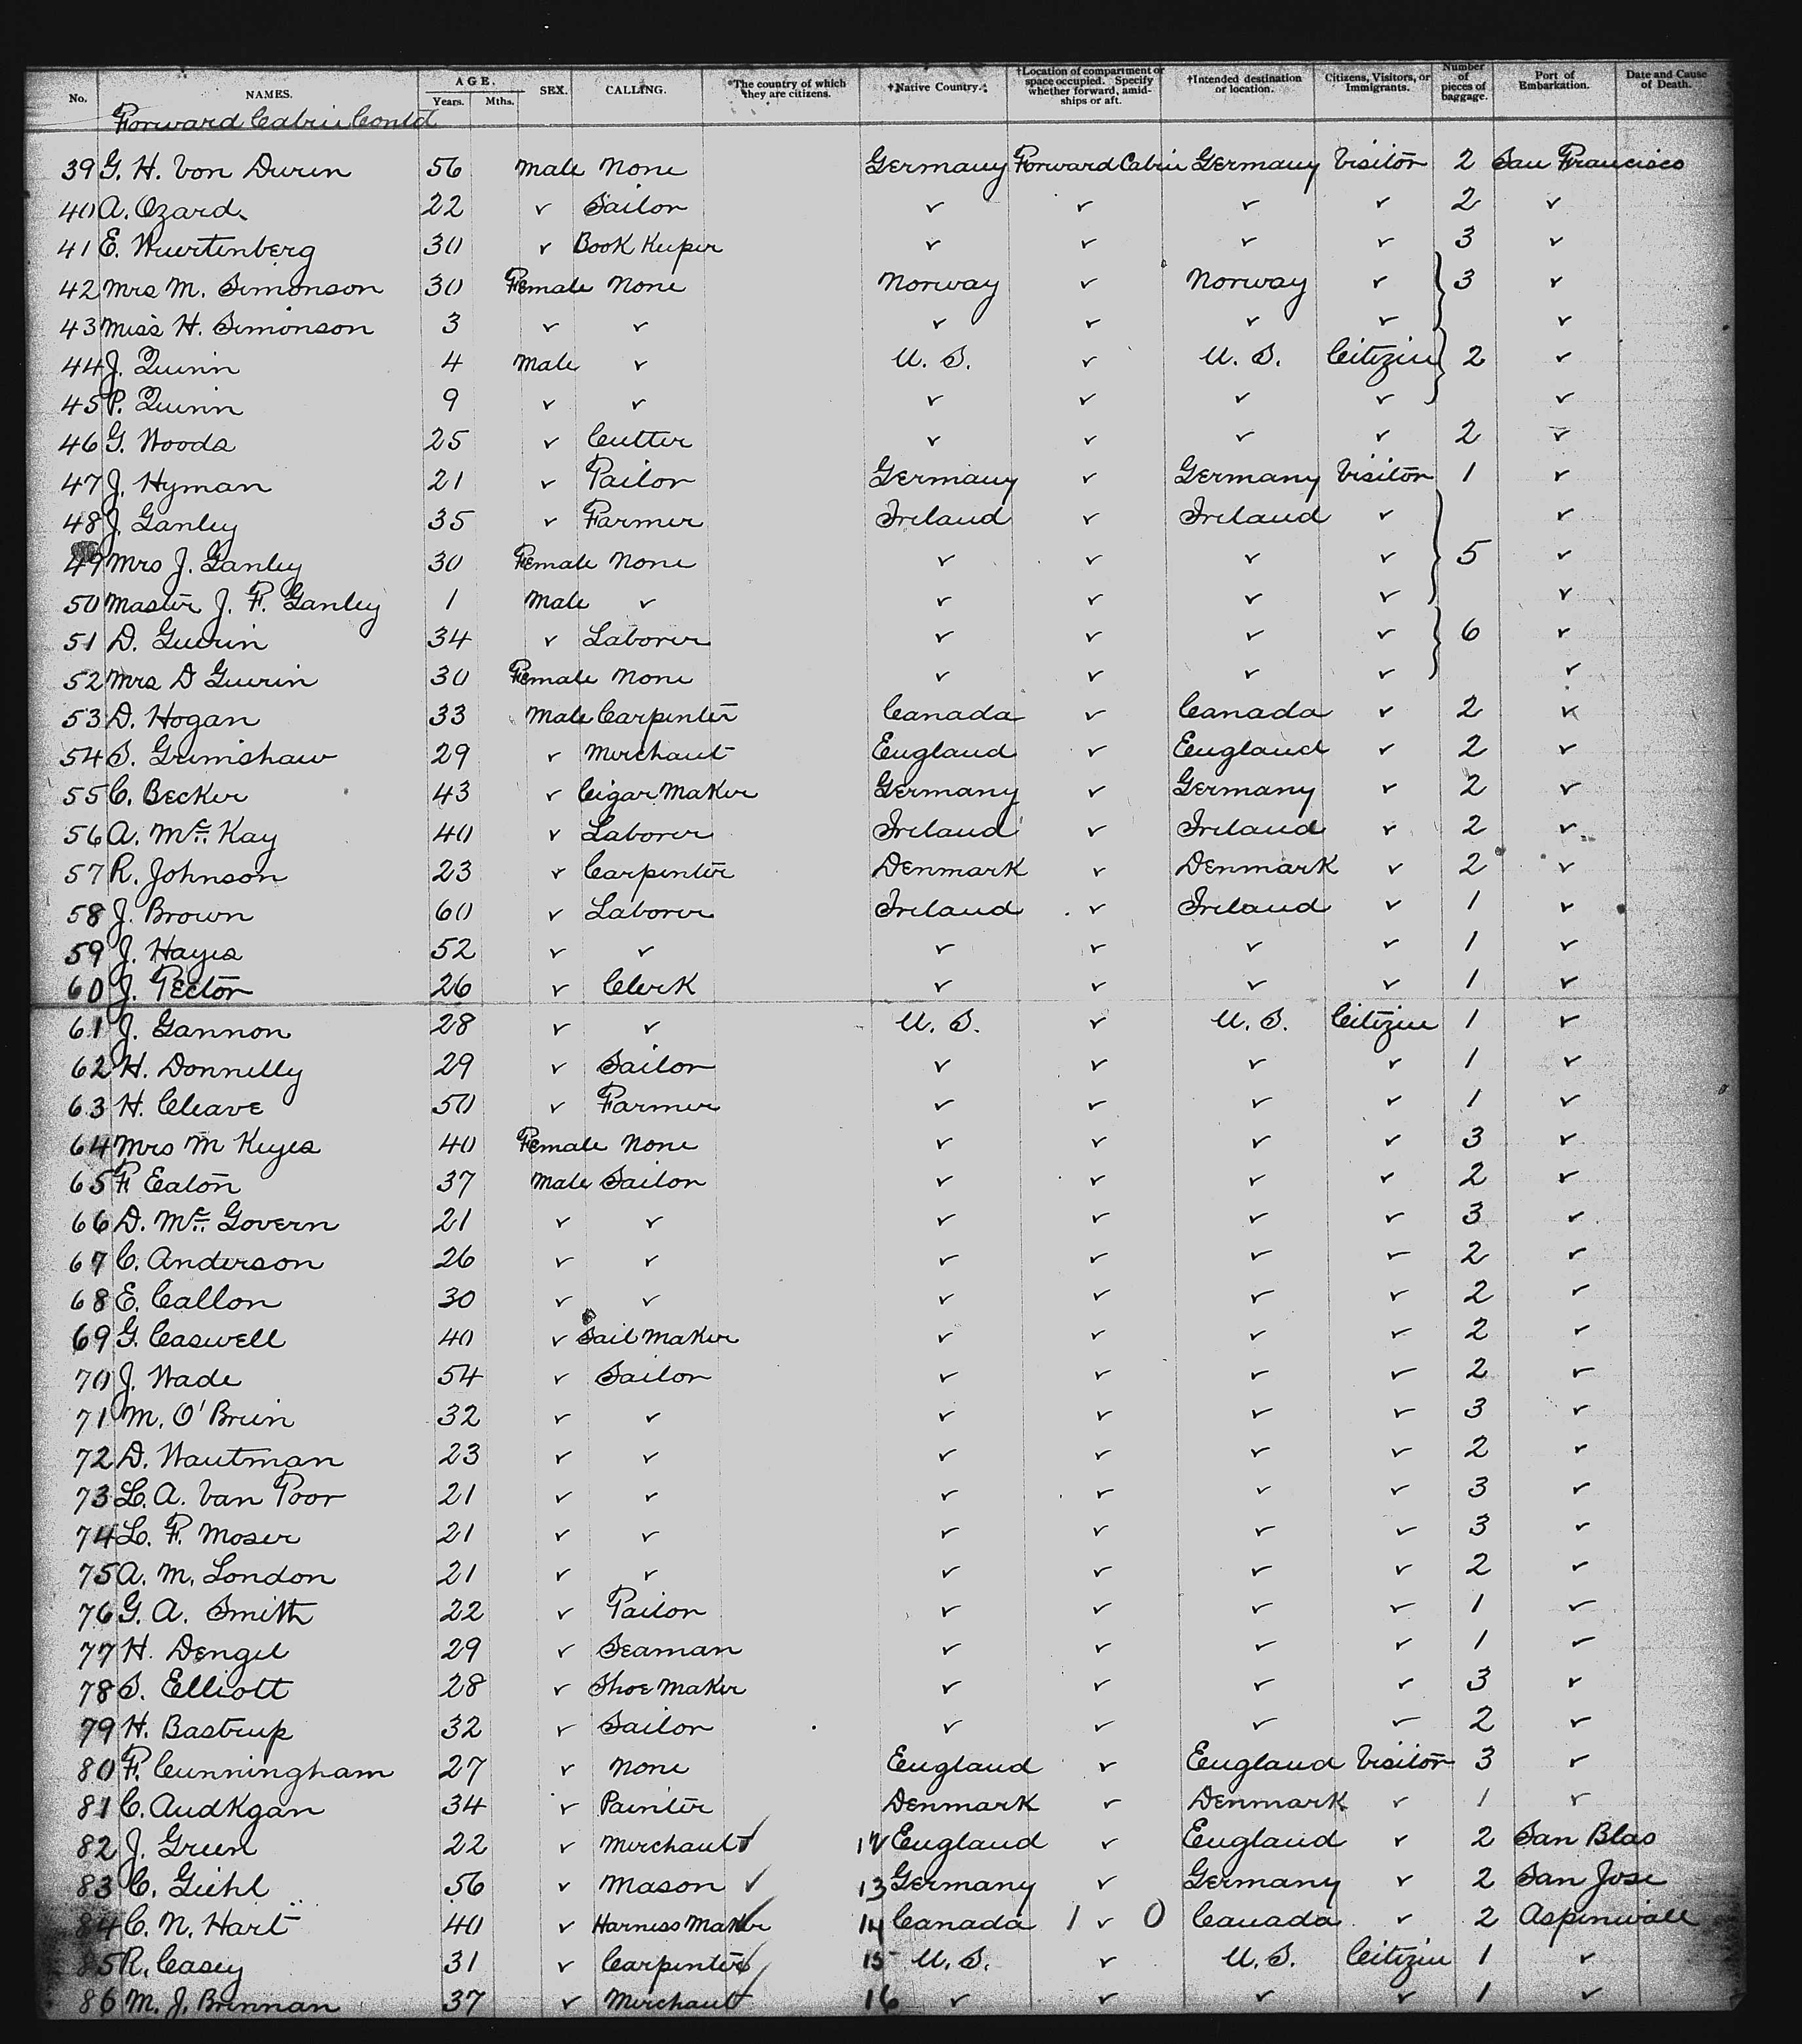 No. NAMES. AGE. Years. Mths. SEX. CALLING. *The country of which they are citizens. †Native Country. †Location of compartment or space occupied. Specify whether forward, amidships or aft. †Intended destination or location. Citizens, Visitors, or Immigrants. Number of pieces of baggage. Port of Embarkation. Date and Cause of Death.
Forward Cabin Contd
39 G. H. Von Duren 56 Male None Germany Forward Cabin Germany Visitor 2 San Francisco
40 A. Ozard 22 ✓ Sailor ✓ ✓ ✓ ✓ 2 ✓
41 E. Wuertenberg 30 ✓ Book Keeper ✓ ✓ ✓ ✓ 3 ✓
42 Mrs M. Simonson 30 Female None Norway ✓ Norway ✓ 3 ✓
43 Miss H. Simonson 3 ✓ ✓ ✓ ✓ ✓ ✓ ✓
44 J. Quinn 4 Male ✓ U. S. ✓ U. S. Citizen 2 ✓
45 P. Quinn 9 ✓ ✓ ✓ ✓ ✓ ✓ ✓
46 G. Woods 25 ✓ Cutter ✓ ✓ ✓ ✓ 2 ✓
47 J. Hyman 21 ✓ Tailor Germany ✓ Germany Visitor 1 ✓
48 J. Ganley 35 ✓ Farmer Ireland ✓ Ireland ✓ ✓
49 Mrs J. Ganley 30 Female None ✓ ✓ ✓ ✓ 5 ✓
50 Master J. F. Ganley 1 Male ✓ ✓ ✓ ✓ ✓ ✓
51 D. Guerin 34 ✓ Laborer ✓ ✓ ✓ ✓ 6 ✓
52 Mrs D Guerin 30 Female None ✓ ✓ ✓ ✓ ✓
53 D. Hogan 33 Male Carpenter Canada ✓ Canada ✓ 2 ✓
54 S. Grimshaw 29 ✓ Merchant England ✓ England ✓ 2 ✓
55 C. Becker 43 ✓ Cigar Maker Germany ✓ Germany ✓ 2 ✓
56 A. Mc Kay 40 ✓ Laborer Ireland ✓ Ireland ✓ 2 ✓
57 R. Johnson 23 ✓ Carpenter Denmark ✓ Denmark ✓ 2 ✓
58 J. Brown 60 ✓ Laborer Ireland ✓ Ireland ✓ 1 ✓
59 J. Hayes 52 ✓ ✓ ✓ ✓ ✓ ✓ 1 ✓
60 J. Pector 26 ✓ Clerk ✓ ✓ ✓ ✓ 1 ✓
61 J. Gannon 28 ✓ ✓ U. S. ✓ U. S. Citizen 1 ✓
62 H. Donnelly 29 ✓ Sailor ✓ ✓ ✓ ✓ 1 ✓
63 H. Cleave 50 ✓ Farmer ✓ ✓ ✓ ✓ 1 ✓
64 Mrs M Keyes 40 Female None ✓ ✓ ✓ ✓ 3 ✓
65 F Eaton 37 Male Sailor ✓ ✓ ✓ ✓ 2 ✓
66 D. Mc Govern 21 ✓ ✓ ✓ ✓ ✓ ✓ 3 ✓
67 C. Anderson 26 ✓ ✓ ✓ ✓ ✓ ✓ 2 ✓
68 E. Callon 30 ✓ ✓ ✓ ✓ ✓ ✓ 2 ✓
69 G. Caswell 40 ✓ Sail Maker ✓ ✓ ✓ ✓ 2 ✓
70 J. Wade 54 ✓ Sailor ✓ ✓ ✓ ✓ 2 ✓
71 M. O'Brien 32 ✓ ✓ ✓ ✓ ✓ ✓ 3 ✓
72 D. Wautman 23 ✓ ✓ ✓ ✓ ✓ ✓ 2 ✓
73 L. A. Van Poor 21 ✓ ✓ ✓ ✓ ✓ ✓ 3 ✓
74 L. F. Moser 21 ✓ ✓ ✓ ✓ ✓ ✓ 3 ✓
75 A. M. London 21 ✓ ✓ ✓ ✓ ✓ ✓ 2 ✓
76 G. A. Smith 22 ✓ Tailor ✓ ✓ ✓ ✓ 1 ✓
77 H. Dengel 29 ✓ Seaman ✓ ✓ ✓ ✓ 1 ✓
78 S. Elliott 28 ✓ Shoe Maker ✓ ✓ ✓ ✓ 3 ✓
79 H. Bastrup 32 ✓ Sailor ✓ ✓ ✓ ✓ 2 ✓
80 F. Cunningham 27 ✓ None England ✓ England Visitor 3 ✓
81 C. Audkgan 34 ✓ Painter Denmark ✓ Denmark ✓ 1 ✓
82 J. Green 22 ✓ Merchant ✓ 12 England ✓ England ✓ 2 San Blas
83 C. Giehl 56 ✓ Mason ✓ 13 Germany ✓ Germany ✓ 2 San Jose
84 C. N. Hart 40 ✓ Harness Maker ✓ 14 Canada 1 ✓ 0 Canada ✓ 2 Aspinwall
85 R. Casey 31 ✓ Carpenter ✓ 15 U. S. ✓ U. S. Citizen 1 ✓
86 M. J. Brennan 37 ✓ Merchant ✓ 16 ✓ ✓ ✓ ✓ 1 ✓